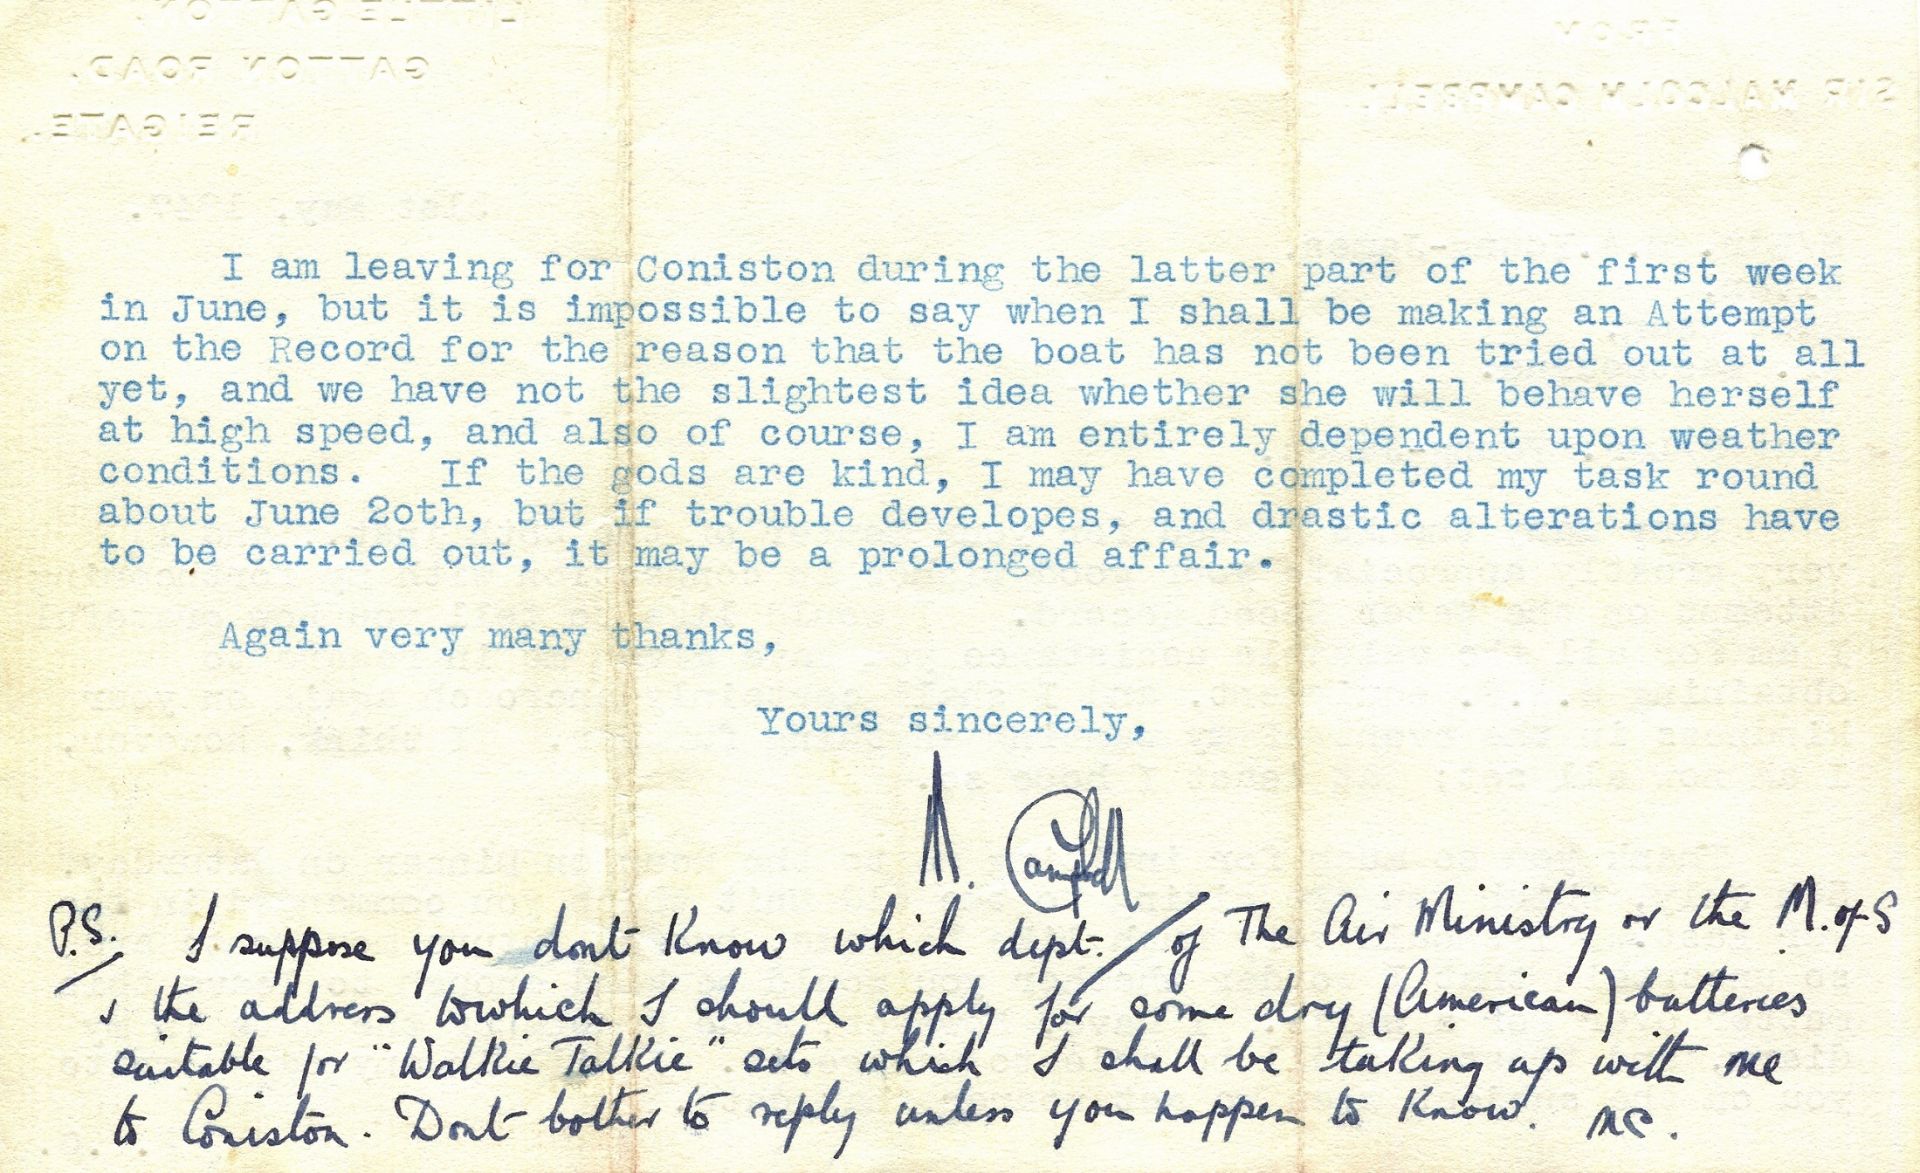 LITTLE GATTON,
GATTON ROAD.
REIGATE.
FROM
SIR MALCOLM CAMPBELL.
I am leaving for Coniston during the latter part of the first week
in June, but it is impossible to say when I shall be making an Attempt
on the Record for the reason that the boat has not been tried out at all
yet, and we have not the slightest idea whether she will behave herself
at high speed, and also of course, I am entirely dependent upon weather
conditions. If the gods are kind, I may have completed my task round
about June 2oth, but if trouble developes, and drastic alterations have
to be carried out, it may be a prolonged affair.
Again very many thanks,
Yours sincerely,
M. Campbell
P.S. I suppose you dont know which dept. / of The Air Ministry or the M. of S
& the address to which I should apply for some dry (American) batteries
suitable for "Walkie Talkie" sets which I shall be taking up with me
to Coniston. Dont bother to reply unless you happen to know. MC.